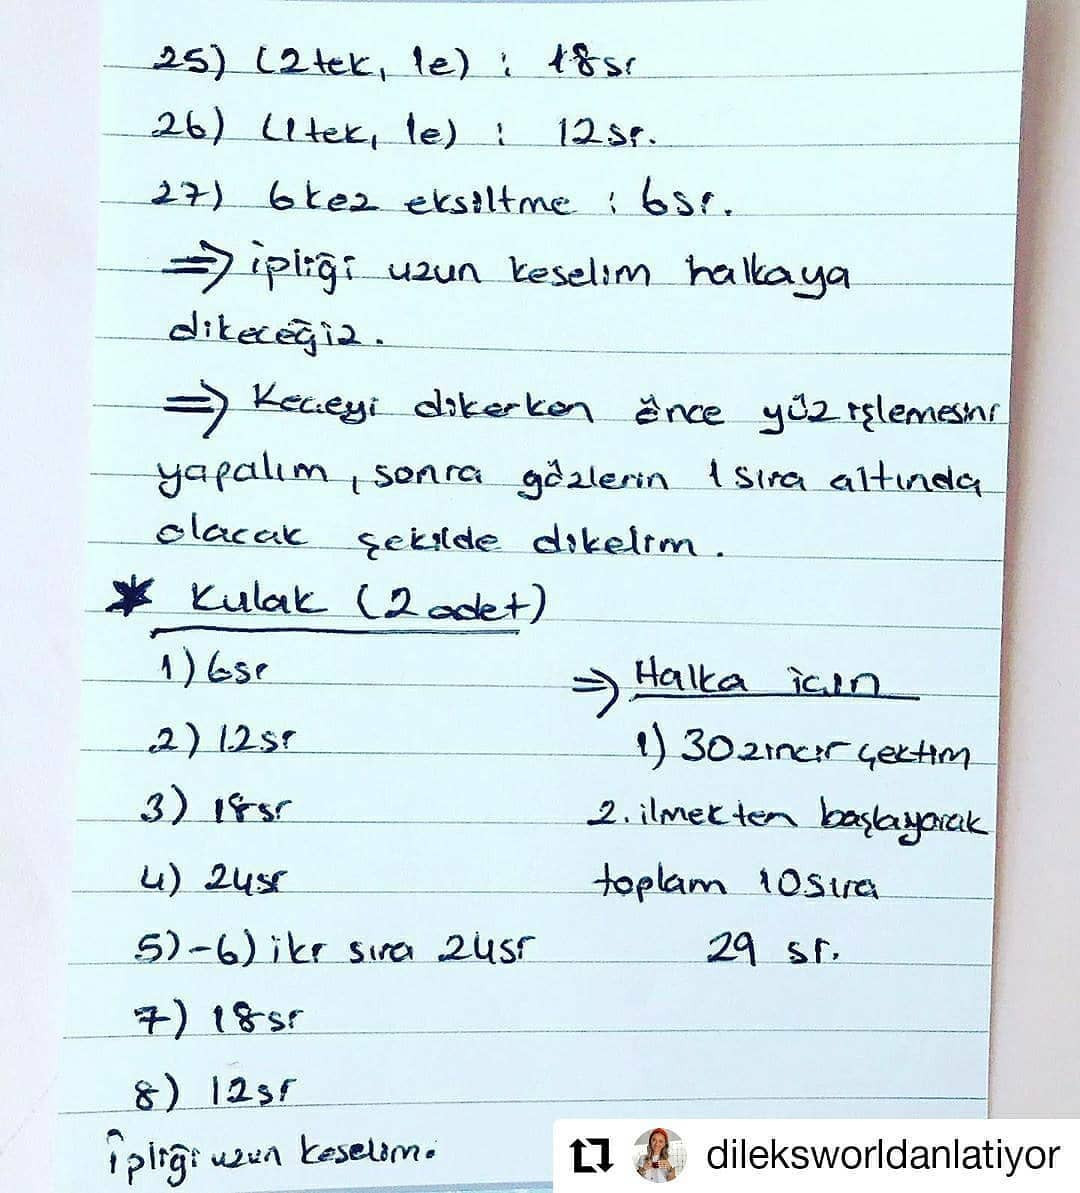 25) (2tek, 1e) : 18sr
26) (1tek, 1e) : 12sr.
27) 6 kez eksiltme : 6sr.
⇒ ipliği uzun keselim halkaya
dikeceğiz.
⇒ Keçeyi dikerken önce yüz işlemesini
yapalım, sonra gözlerin 1 sıra altında
olacak şekilde dikelim.
* Kulak (2 adet)
1) 6sr
2) 12sr
3) 18sr
4) 24sr
5)-6) iki sıra 24sr
7) 18sr
8) 12sr
İpliği uzun keselim.
⇒ Halka için
1) 30 zincir çektim
2. ilmekten başlayarak
toplam 10 sıra
29 sr.
dileksworldanlatiyor